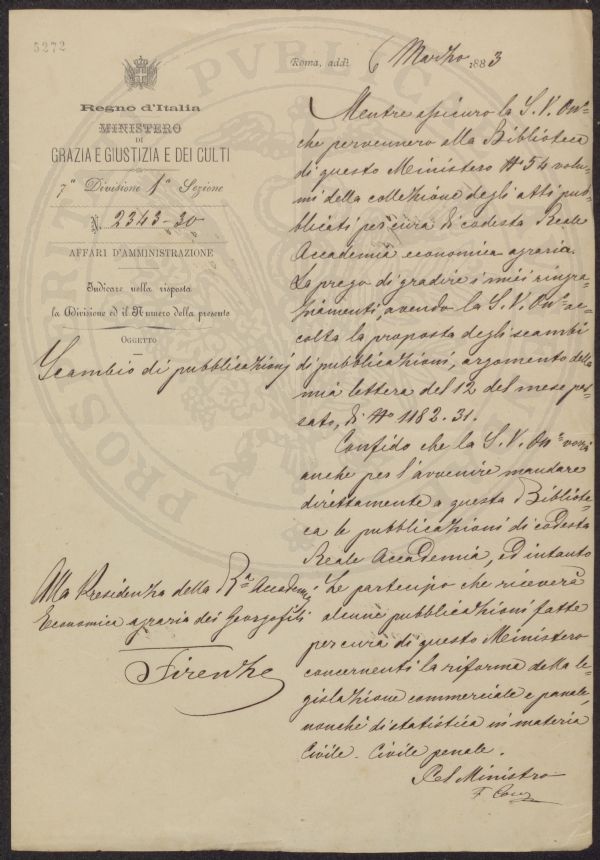 5272
Roma, addì 6 Marzo 1883
Regno d'Italia
MINISTERO
DI
GRAZIA E GIUSTIZIA E DEI CULTI
7ª Divisione 1ª Sezione
N. 2343-30
AFFARI D'AMMINISTRAZIONE
Indicare nella risposta
la Divisione ed il Numero della presente
OGGETTO
Scambio di pubblicazioni
Alla Presidenza della Rª Accademia
Economica agraria dei Georgofili
Firenze
Mentre assicuro la S. V. Onª
che pervennero alla Biblioteca
di questo Ministero Nº 54 volu-
mi della collezione degli atti pub-
blicati per cura di codesta Reale
Accademia economica agraria.
La prego di gradire i miei ringra-
ziamenti, avendo la S. V. Onª ac-
colta la proposta degli scambi
di pubblicazioni, argomento della
mia lettera del 12 del mese pas-
sato, di Nº 1182. 31.
Confido che la S. V. Onª vorrà
anche per l'avvenire mandare
direttamente a questa Bibliote-
ca le pubblicazioni di codesta
Reale Accademia, ed intanto
Le partecipo che riceverà
alcune pubblicazioni fatte
per cura di questo Ministero
concernenti la riforma della le-
gislazione commerciale e penale,
nonché di statistica in materia
Civile - Civile penale.
Pel Ministro
PROSPERITATI PVBLICAE